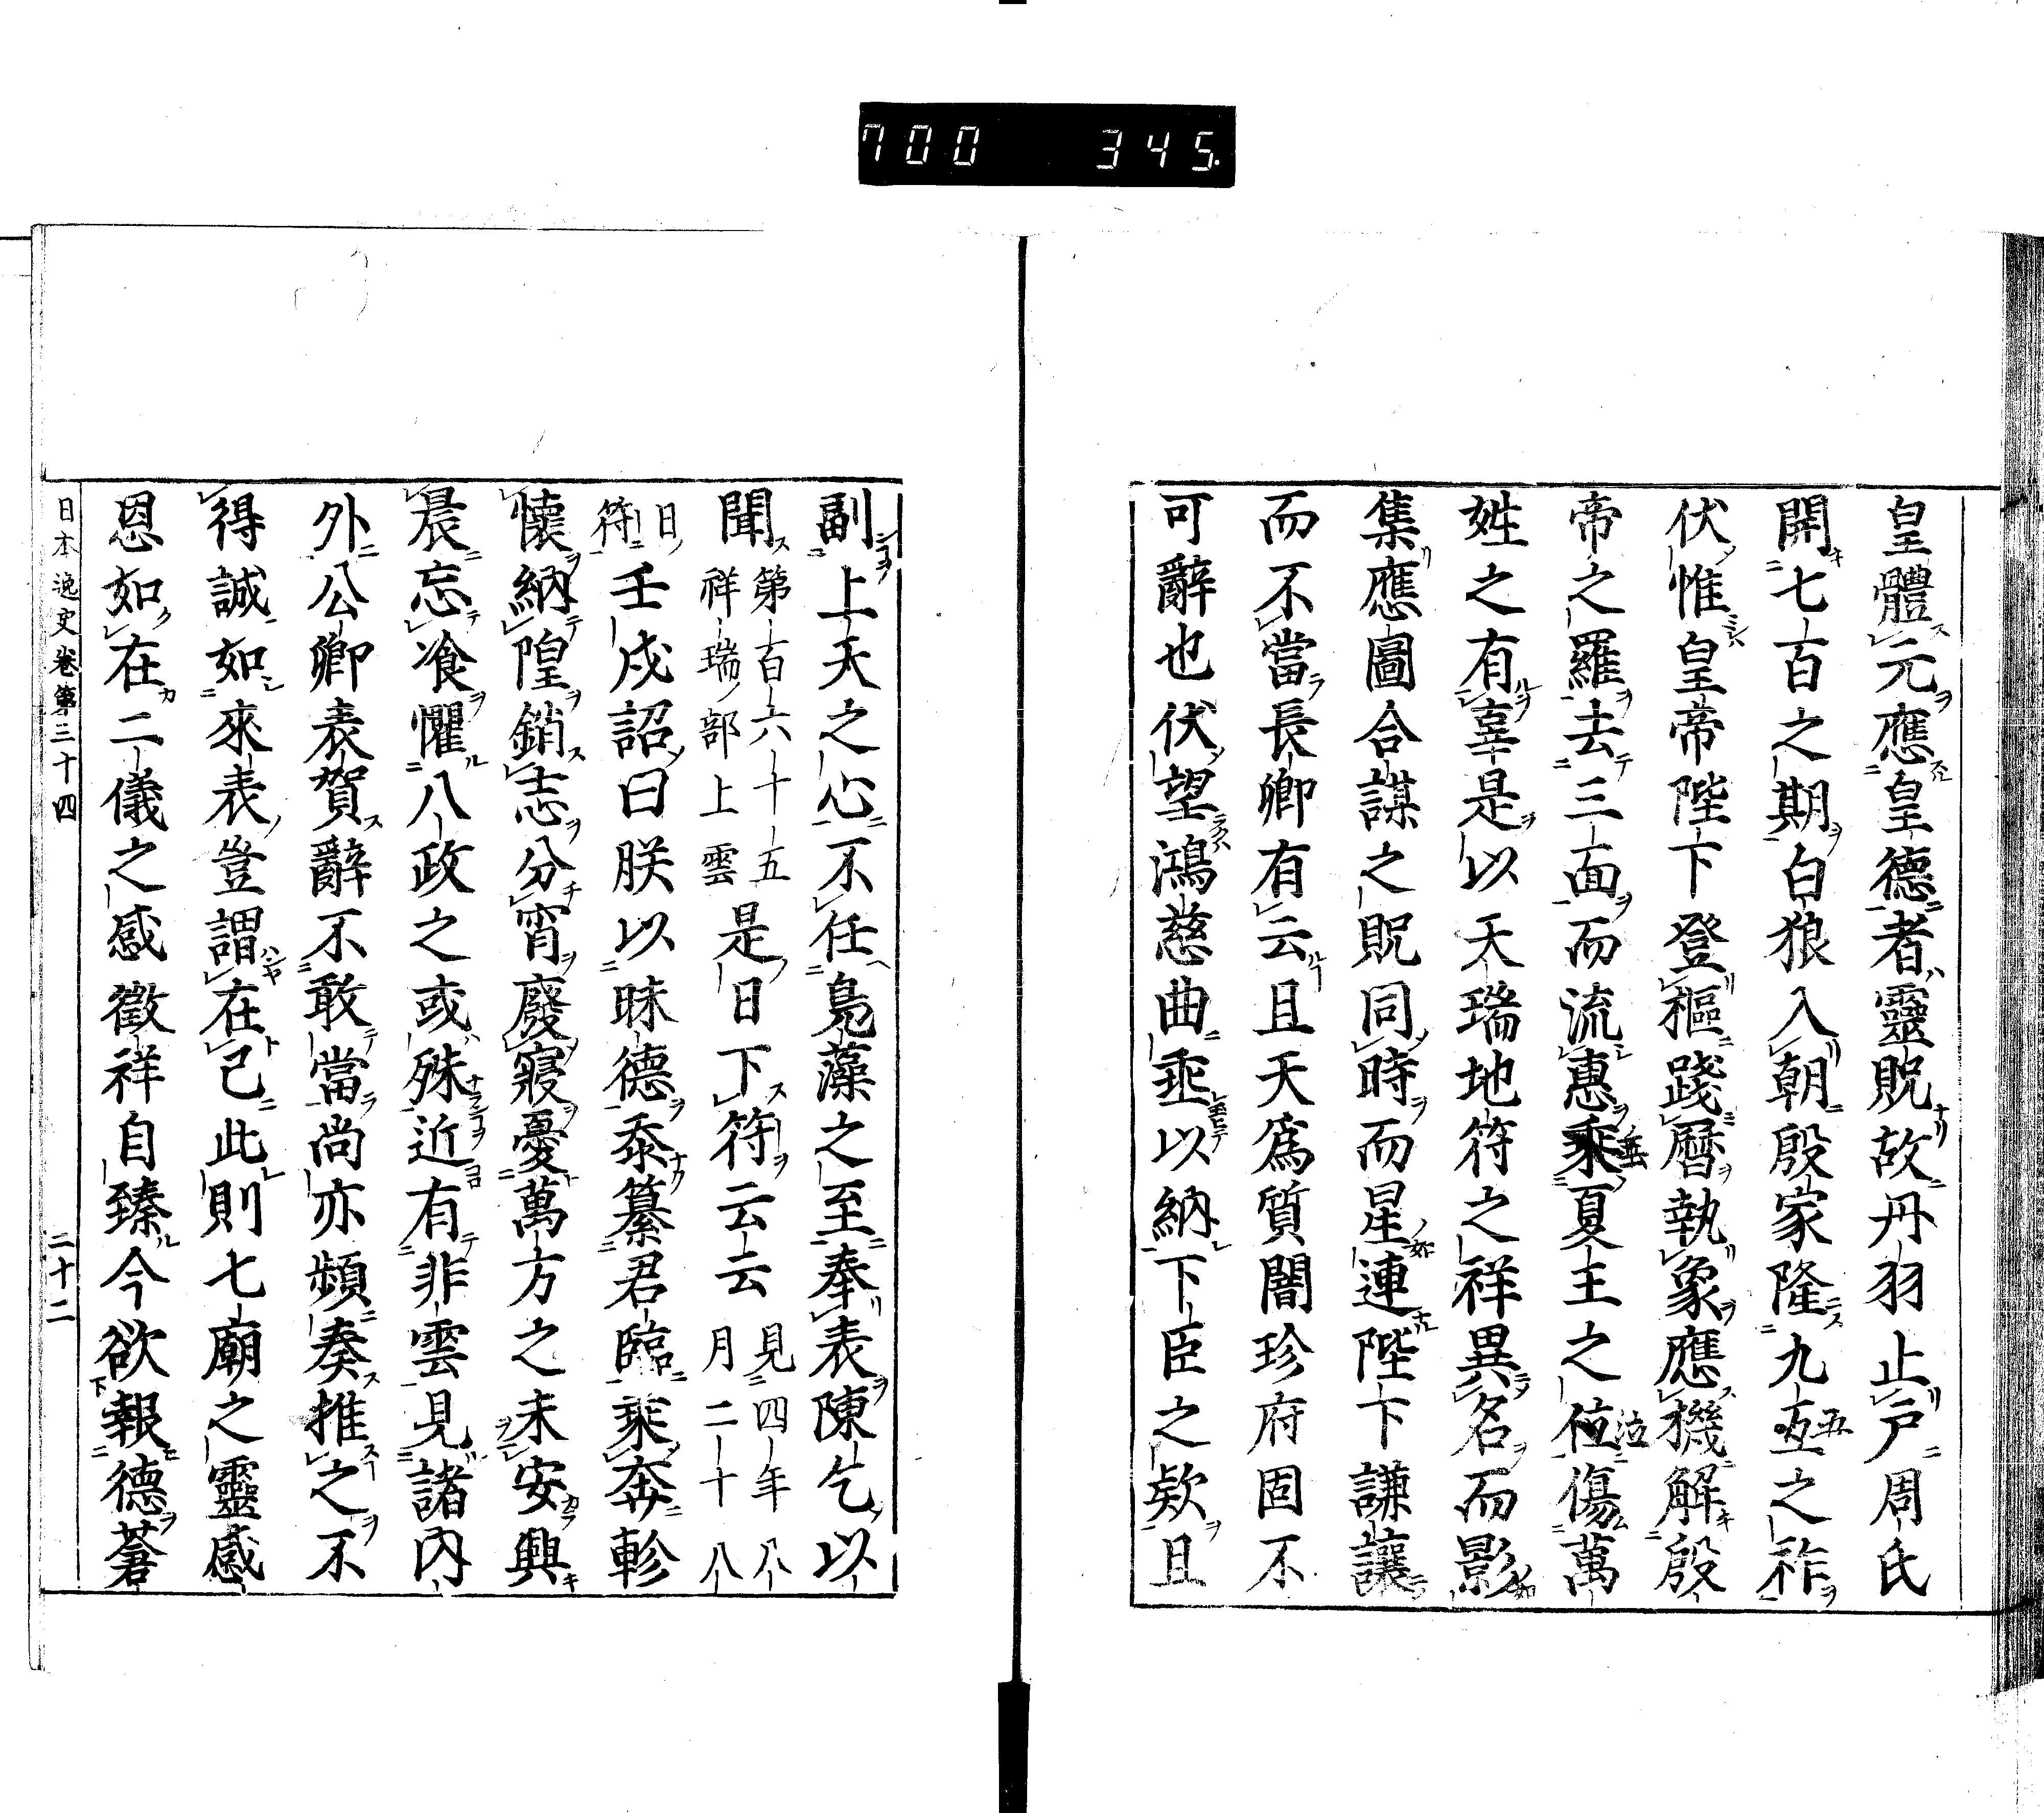 700 345.
皇體元應皇德者靈貺故丹羽止戸周氏
開七百之期白狼入朝殷家隆九五之祚
伏惟皇帝陛下登樞踐曆執象應機解殷
帝之羅去三面而流惠乘夏主之位傷萬
姓之有辜是以天瑞地符之祥異名而影
集應圖合謀之貺同時而星連陛下謙讓
而不當長卿有云且天爲質闇珍府固不
可辭也伏望鴻慈曲垂以納下臣之欵且
副上天之心不任鳧藻之至奉表陳乞以
聞第百六十五祥瑞部上雲是日下符云云見四年八月二十八
日符壬戌詔曰朕以昧德忝纂君臨乘奔軫
懷納隍銷志分宵廢寢憂萬方之未安興
晨忘飡懼八政之或殊近有非雲見諸內
外公卿表賀辭不敢當尚亦頻奏推之不
得誠如來表豈謂在己此則七廟之靈感
恩如在二儀之感徵祥自臻今欲報德蒼
日本逸史卷第三十四 二十二